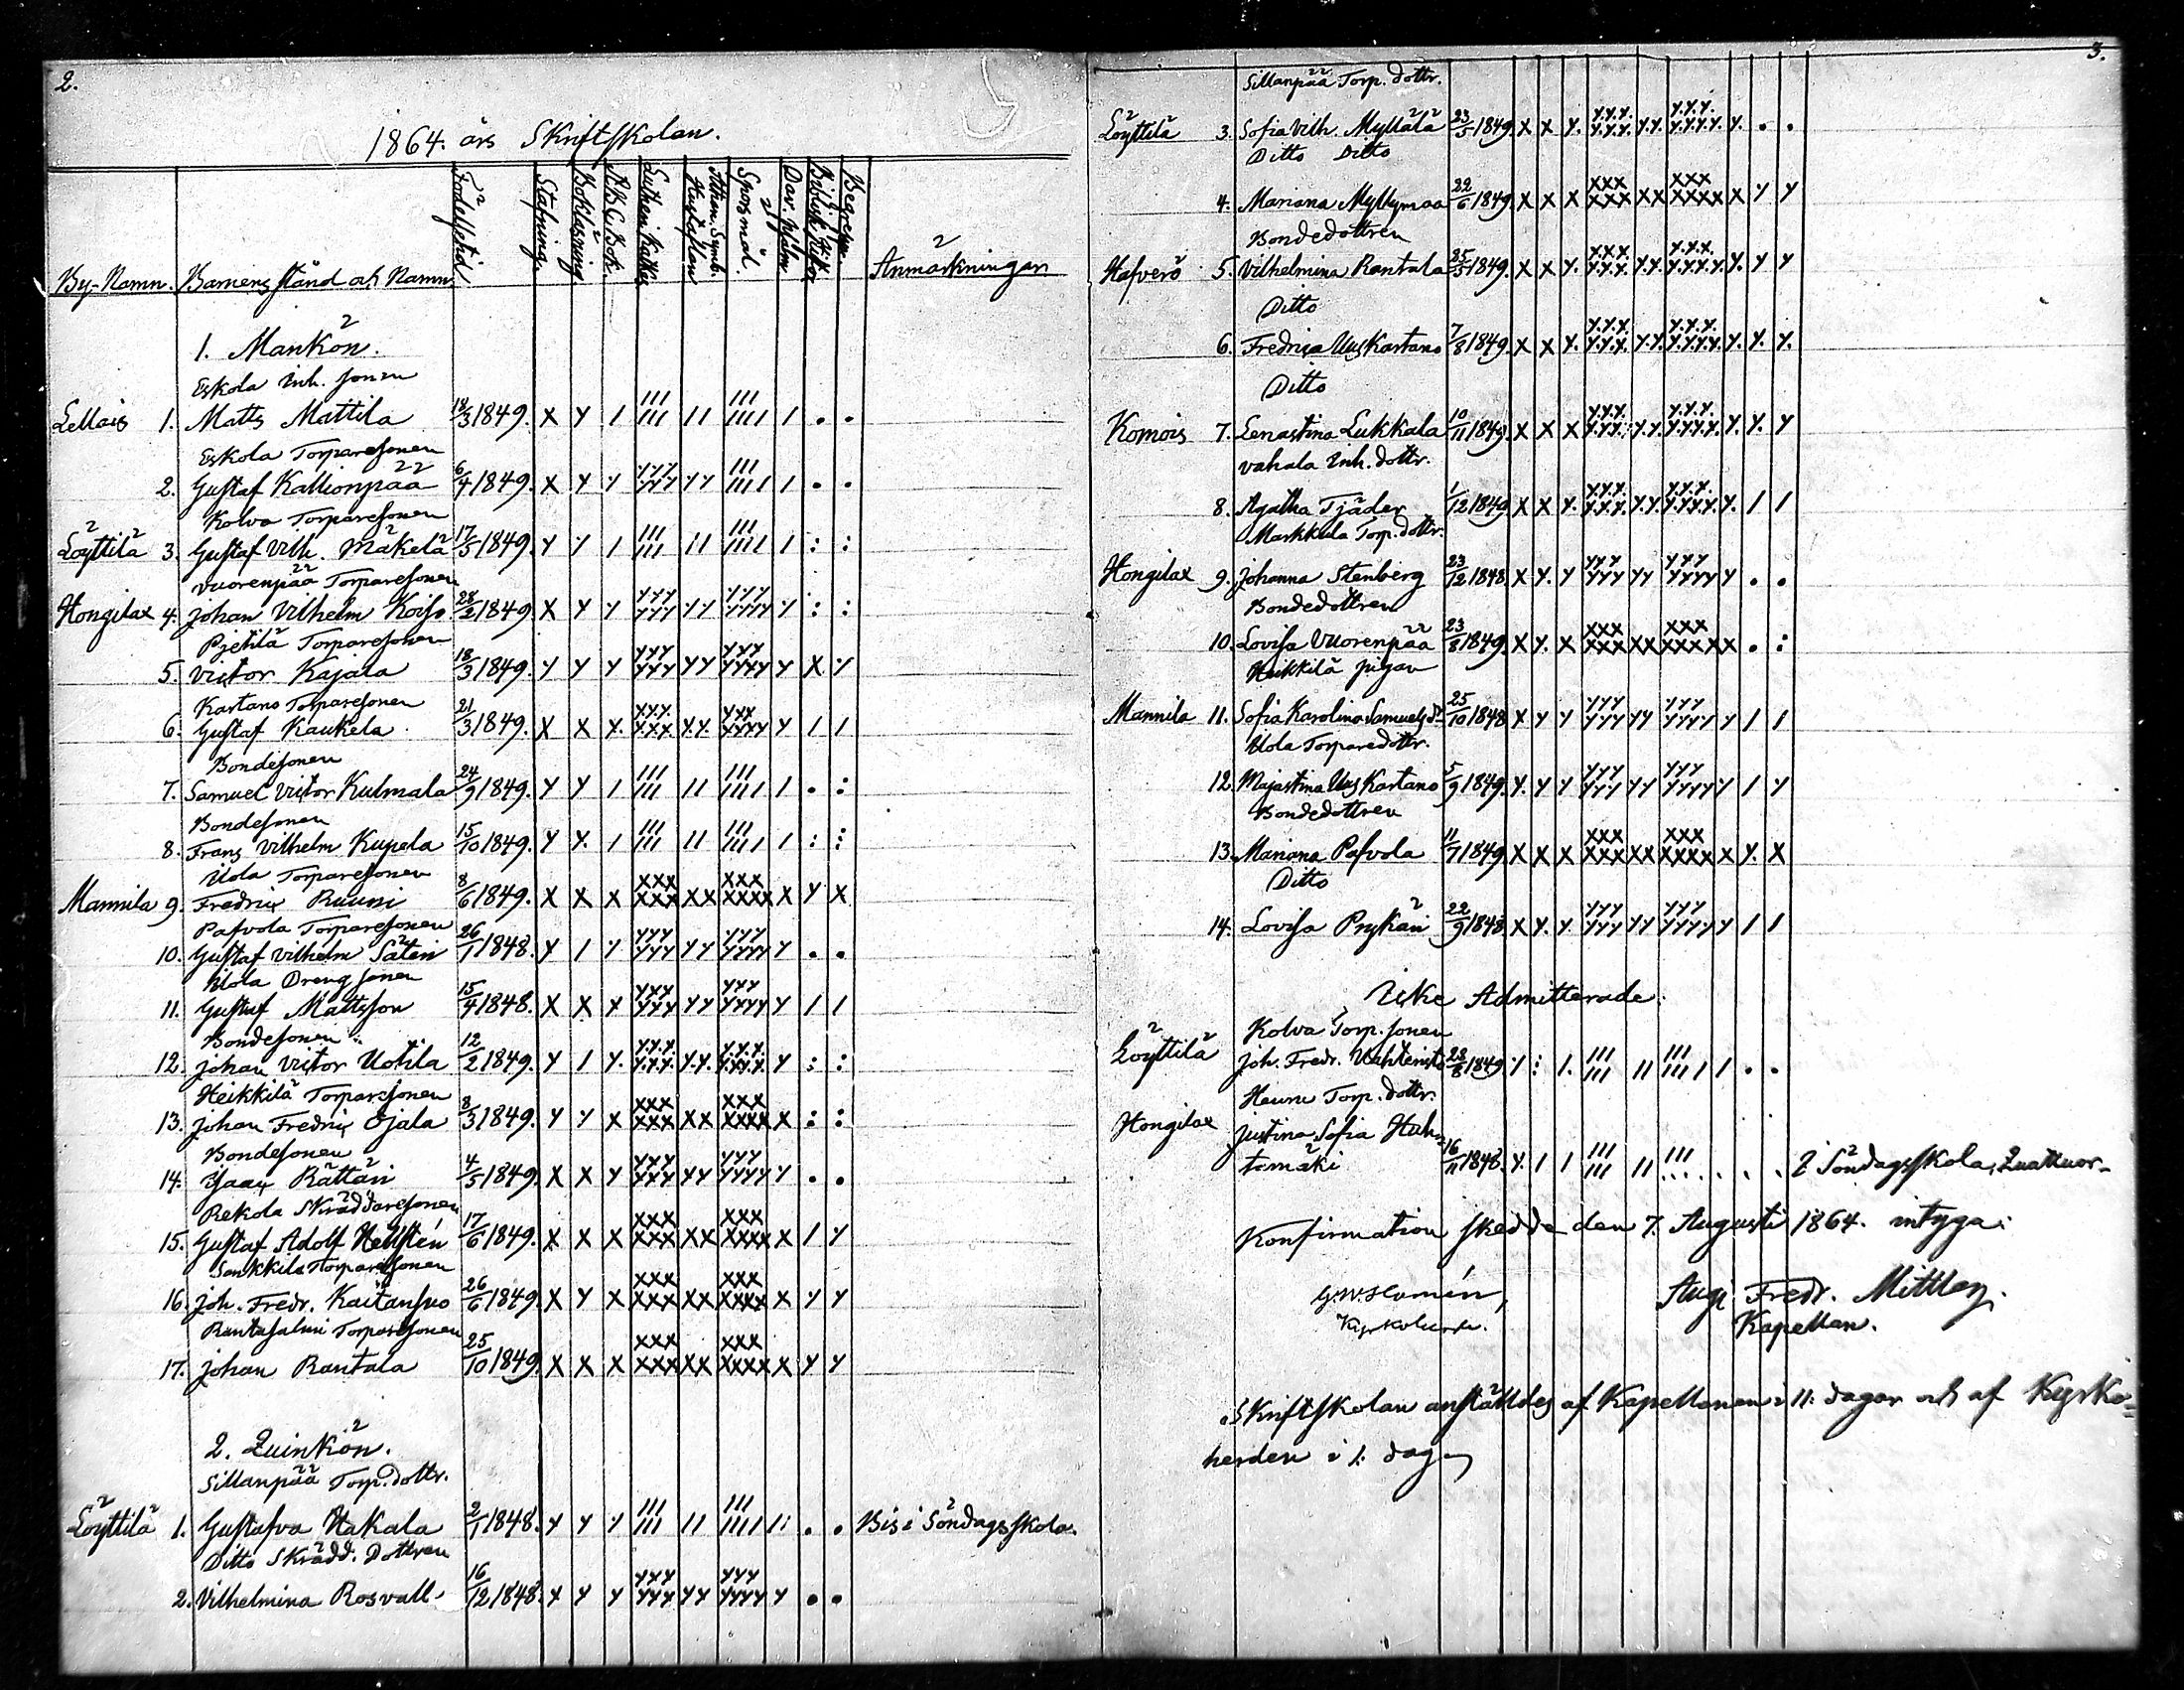 2.
1864. års Skriftskolan.
By-Namn. Barnens stånd och Namn. Födelsetid. Stafning. Bokläsning A.B.C. Bok. Lutheri Katkes Athan. Symb. Hustaflan Spörsmål. Dav. Psalm. Begrepp Anmärkningar
1. Mankön.
Eskola Inh. sonen
Lellais 1. Matts Mattila 18/3 1849. X Y / /// /// // /// //// / . .
Eskola Torparesonen
2. Gustaf Kallionpää 6/4 1849. X Y Y YYY YYY YY /// //// / . .
Kolva Torparesonen
Löyttilä 3. Gustaf Vilh. Mäkelä 17/5 1849. Y Y / /// /// // /// //// / : :
Vuorenpää Torparesonen
Hongilax 4. Johan Vilhelm Koiso 28/2 1849. X Y Y YYY YYY YY YYY YYYY Y : :
Pietilä Torparesonen
5. Victor Kajala 18/3 1849. Y Y Y YYY YYY YY YYY YYYY Y X Y
Kartano Torparesonen
6. Gustaf Kaukela 21/3 1849. X X X. Y.Y.Y. X.X.X. Y.Y. YYY YYYY Y / /
Bondesonen
7. Samuel Victor Kulmala 24/9 1849. Y Y / /// /// // /// //// / . :
Bondesonen
8. Frans Vilhelm Kupala 15/10 1849. Y Y. / /// /// // /// //// / : :
Uola Torparesonen
Mannila 9. Fredric Ruuni 8/6 1849. X X X XXX XXX XX XXX XXXX X Y X
Pafvola Torparesonen
10. Gustaf Vilhelm Såten 26/1 1848. Y / Y YYY YYY YY YYY YYYY Y . .
Uola Dreng sonen
11. Gustaf Mattsson 15/4 1848. X X X YYY YYY YY YYY YYYY Y / /
Bondesonen
12. Johan Victor Uotila 12/2 1849. Y / Y. Y.Y.Y. Y.Y.Y. Y.Y. Y.Y.Y. Y.Y.Y.Y. Y : :
Heikkilä Torparesonen
13. Johan Fredric Ojala 8/3 1849. Y Y X XXX XXX XX XXX XXXX X : :
Bondesonen
14. Isaac Rättäri 4/5 1849. X X Y YYY YYY YY YYY YYYY Y . .
Rekola Skräddaresonen
15. Gustaf Adolf Hellstén 17/6 1849. X X X XXX XXX XX XXX XXXX X / Y
Sonkkila Torparesonen
16. Joh. Fredr. Kaitansuo 26/6 1849. X Y X XXX XXX XX XXX XXXX X Y Y
Rantasalmi Torparesonen
17. Johan Rantala 25/10 1849. X X X XXX XXX XX XXX XXXX X Y Y
2. Quinkön.
Sillanpää Torp. dottr.
Löyttilä 1. Gustafva Hakala 2/1 1848. Y Y Y /// /// // /// //// // . . Bis i Söndagsskola.
Ditto Skrädd. Dottren
2. Vilhelmina Rosvall 16/12 1848. Y Y Y YYY YYY YY YYY YYYY Y . .
3.
Sillanpää Torp. dottr.
Löyttilä 3. Sofia Vilh. Myllälä 23/5 1849. X X Y. Y.Y.Y. Y.Y.Y. Y.Y. Y.Y.Y. Y.Y.Y.Y. Y. . .
Ditto Ditto
4. Mariana Myllymaa 22/6 1849 X X X XXX XXX XX XXX XXXX X Y Y
Bondedottren
Hafverö 5. Vilhelmina Rantala 25/5 1849. X X Y. X.X.X. Y.Y.Y. Y.Y. Y.Y.Y. Y.Y.Y.Y. Y. Y Y
Ditto
6. Fredrica Uus Kartano 7/8 1849. X X Y. Y.Y.Y. Y.Y.Y. Y.Y. Y.Y.Y. Y.Y.Y.Y. Y. Y. Y.
Ditto
Komois 7. Lenastina Lukkala 10/11 1849. X X X Y.Y.Y. Y.Y.Y. Y.Y. Y.Y.Y. Y.Y.Y.Y. Y. Y. Y
Vahala Inh. dottr.
8. Agatha Tjäder 1/12 1849 X X Y. Y.Y.Y. Y.Y.Y. Y.Y. Y.Y.Y. Y.Y.Y.Y. Y. / /
Markkula Torp. dottr.
Hongilax 9. Johanna Stenberg 23/12 1848. X Y. Y YYY YYY YY YYY YYYY Y . .
Bondedottren
10. Lovisa Vuorenpää 23/8 1849. X Y. X XXX XXX XX XXX XXXX X . :
Heikkilä pigan
Mannila 11. Sofia Karolina Samuels dr 25/10 1848 X Y Y YYY YYY YY YYY YYYY Y / /
Uola Torparedottr.
12. Majastina Uus Kartano 5/9 1849. Y. Y Y YYY YYY YY YYY YYYY Y / Y
Bondedottren
13. Mariana Pafvola 11/7 1849 X X X XXX XXX XX XXX XXXX X Y. X
Ditto
14. Lovisa Prykäri 22/9 1848. X Y. Y. YYY YYY YY YYY YYYY Y / /
Icke Admitterade.
Kolva Torp. sonen
Löyttilä Joh. Fredr. Vahteristo 28/8 1849. Y : /. /// /// // /// //// / . .
Heuru Torp. dottr.
Hongilax Justina Sofia Huh=
tamäki 16/11 1848. Y. / / /// /// // /// .... . . . i Söndagsskola, Quattuor-
Konfirmation skedde den 7. Augusti 1864. intyga:
Aug. Fredr. Mittler.
Kapellan.
Skriftskolan anställdes af Kapellanen i 11. dagar och af Kyrko=
herden i 1. dag